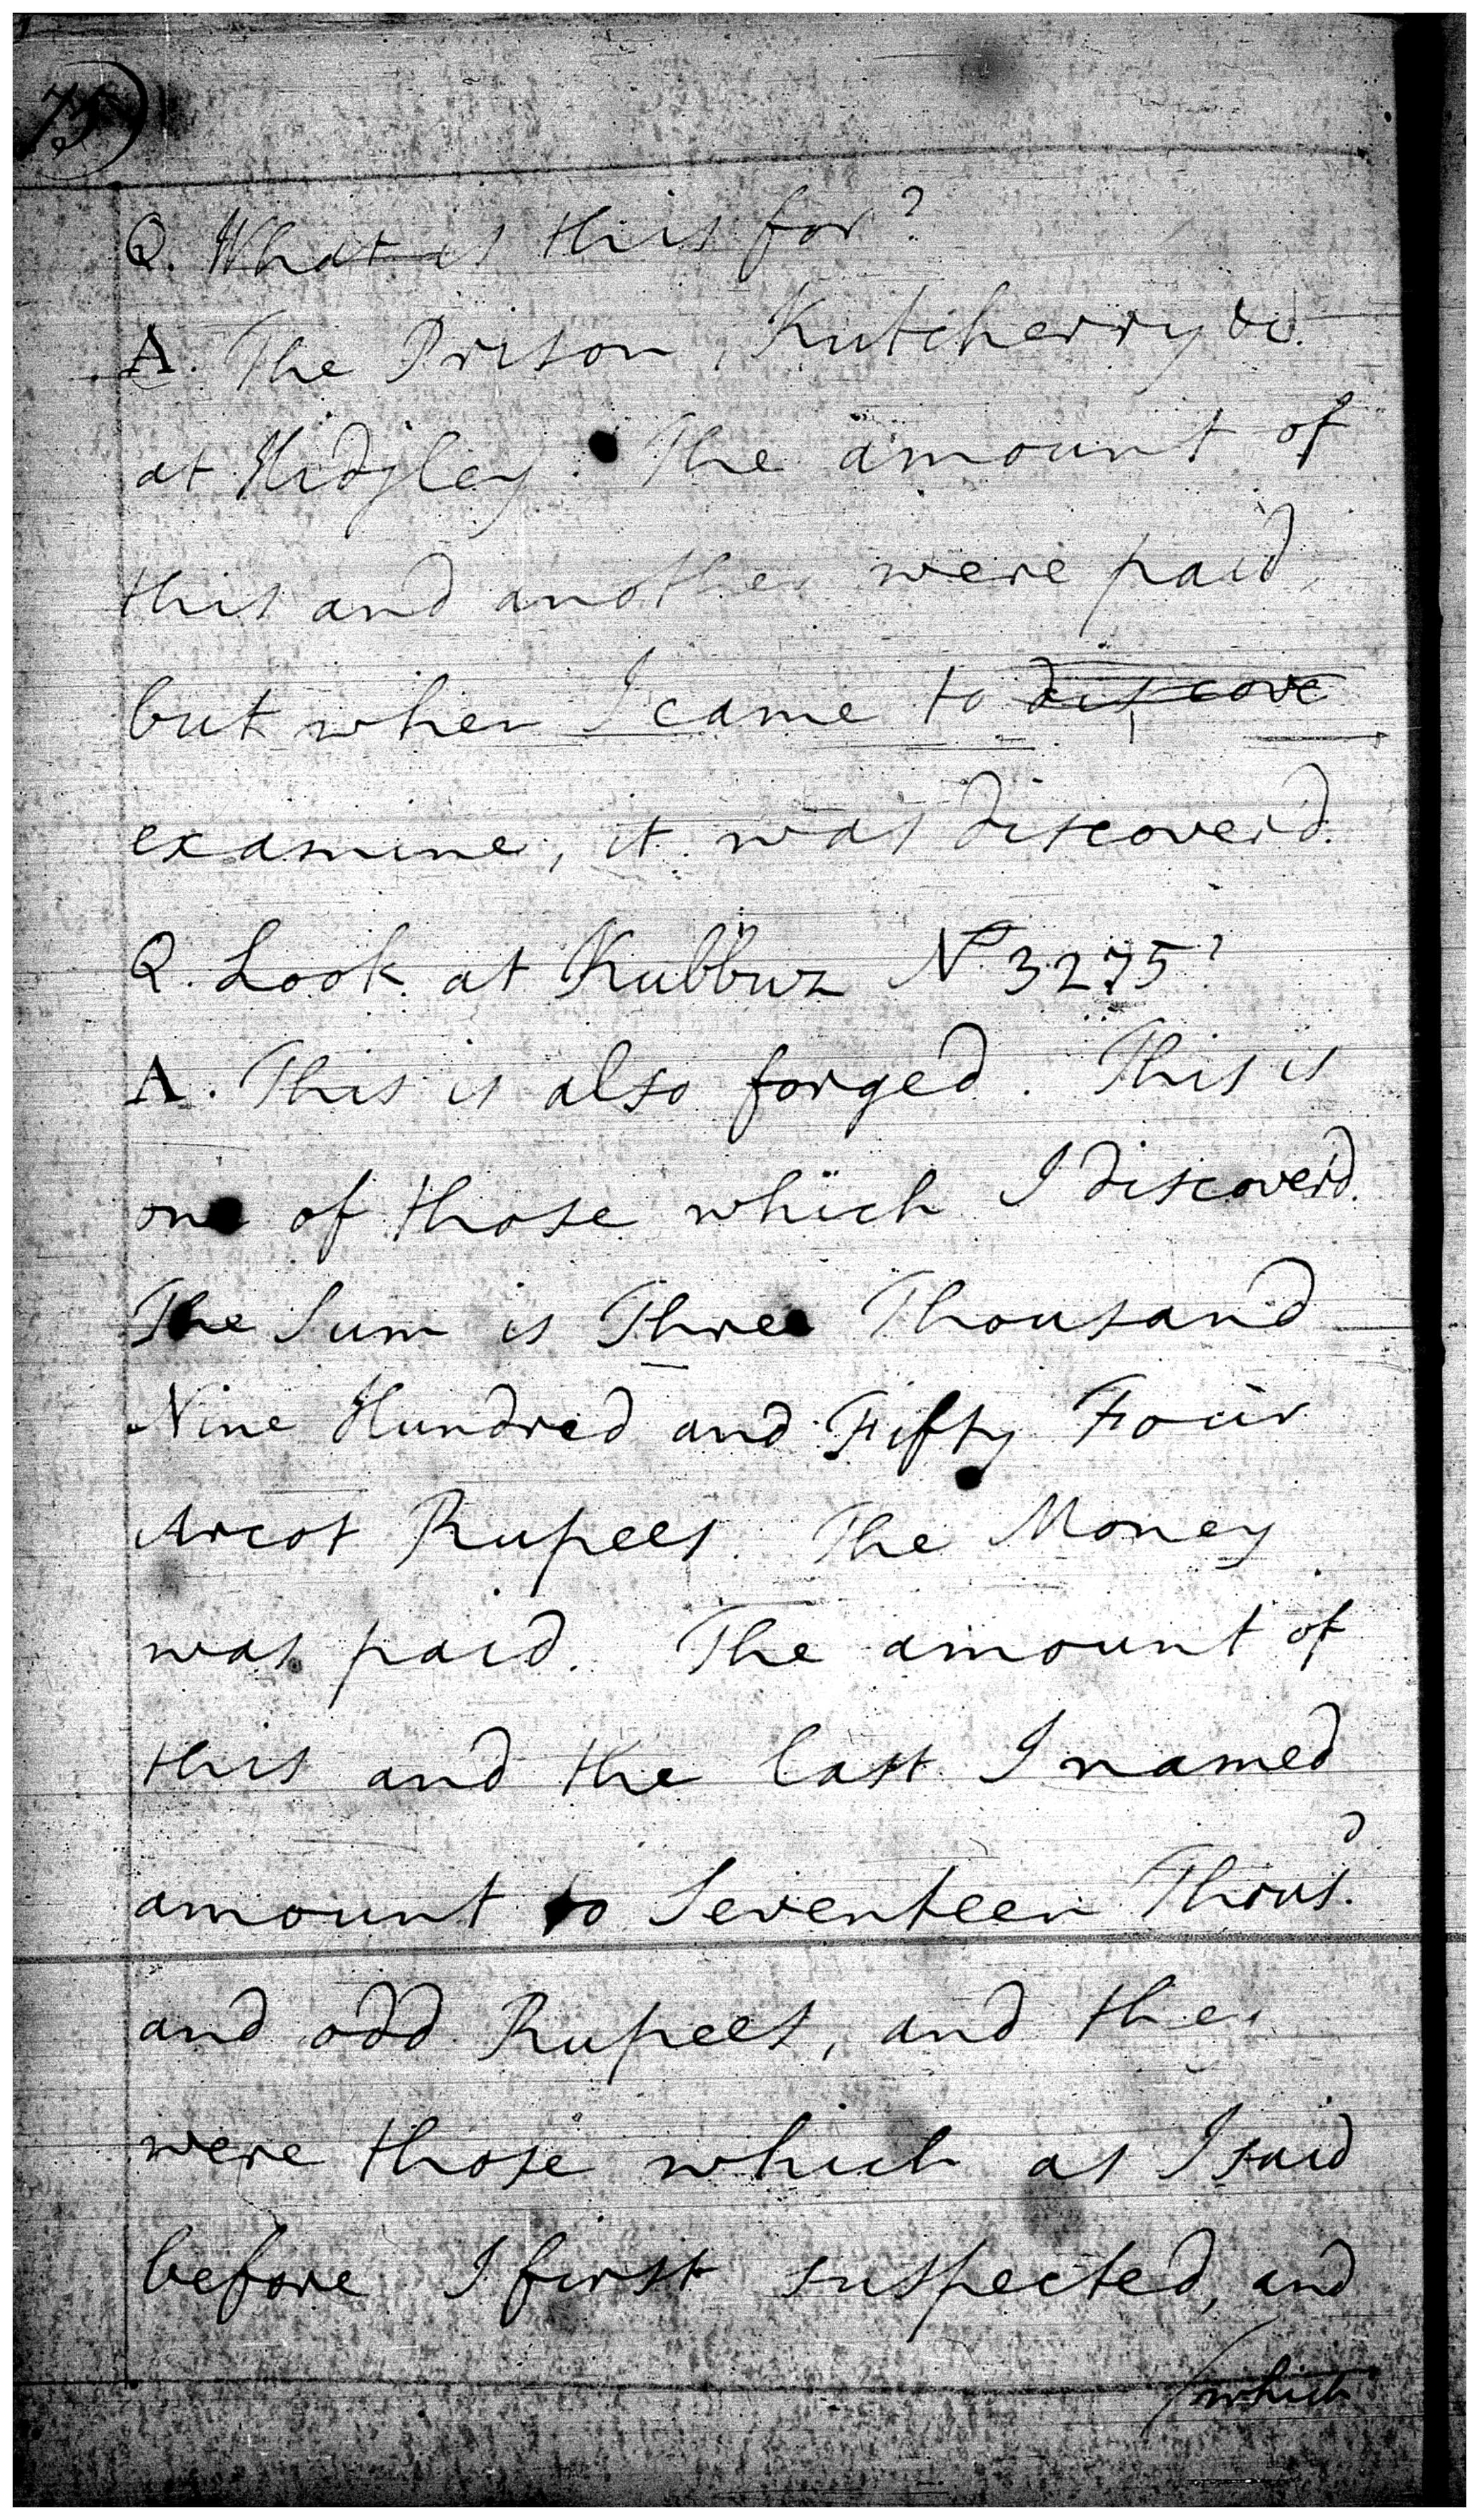 75
Q. What is this for?
A. The Prison, Kutcherry &c.
at Hidjley. The amount of
this and another were paid,
but when I came to discove
examine, it was discoverd.
Q. Look at Kubbuz No 3275?
A. This is also forged. This is
one of those which I discoverd.
The Sum is Three Thousand
Nine Hundred and Fifty Four
Arcot Rupees. The Money
was paid. The amount of
this and the last I named
amount to Seventeen Thousd.
and odd Rupees, and they
were those which as I said
before I first suspected, and
which